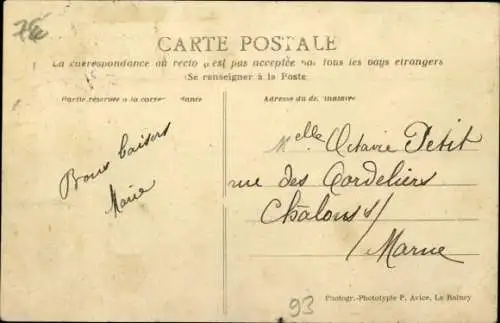 CARTE POSTALE
La correspondance au recto n'est pas acceptée par tous les pays étrangers
(Se renseigner à la Poste
Partie réservée à la correspondance
Adresse du destinataire
Bons baisers
Marie
Melle Octavie Petit
rue des Cordeliers
Châlons s/
Marne
93
Photogr.-Phototypie P. Avice, Le Raincy